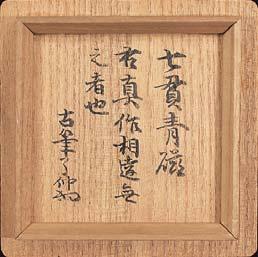 七貫青磁
右真作相違無
之者也
古筆了仲